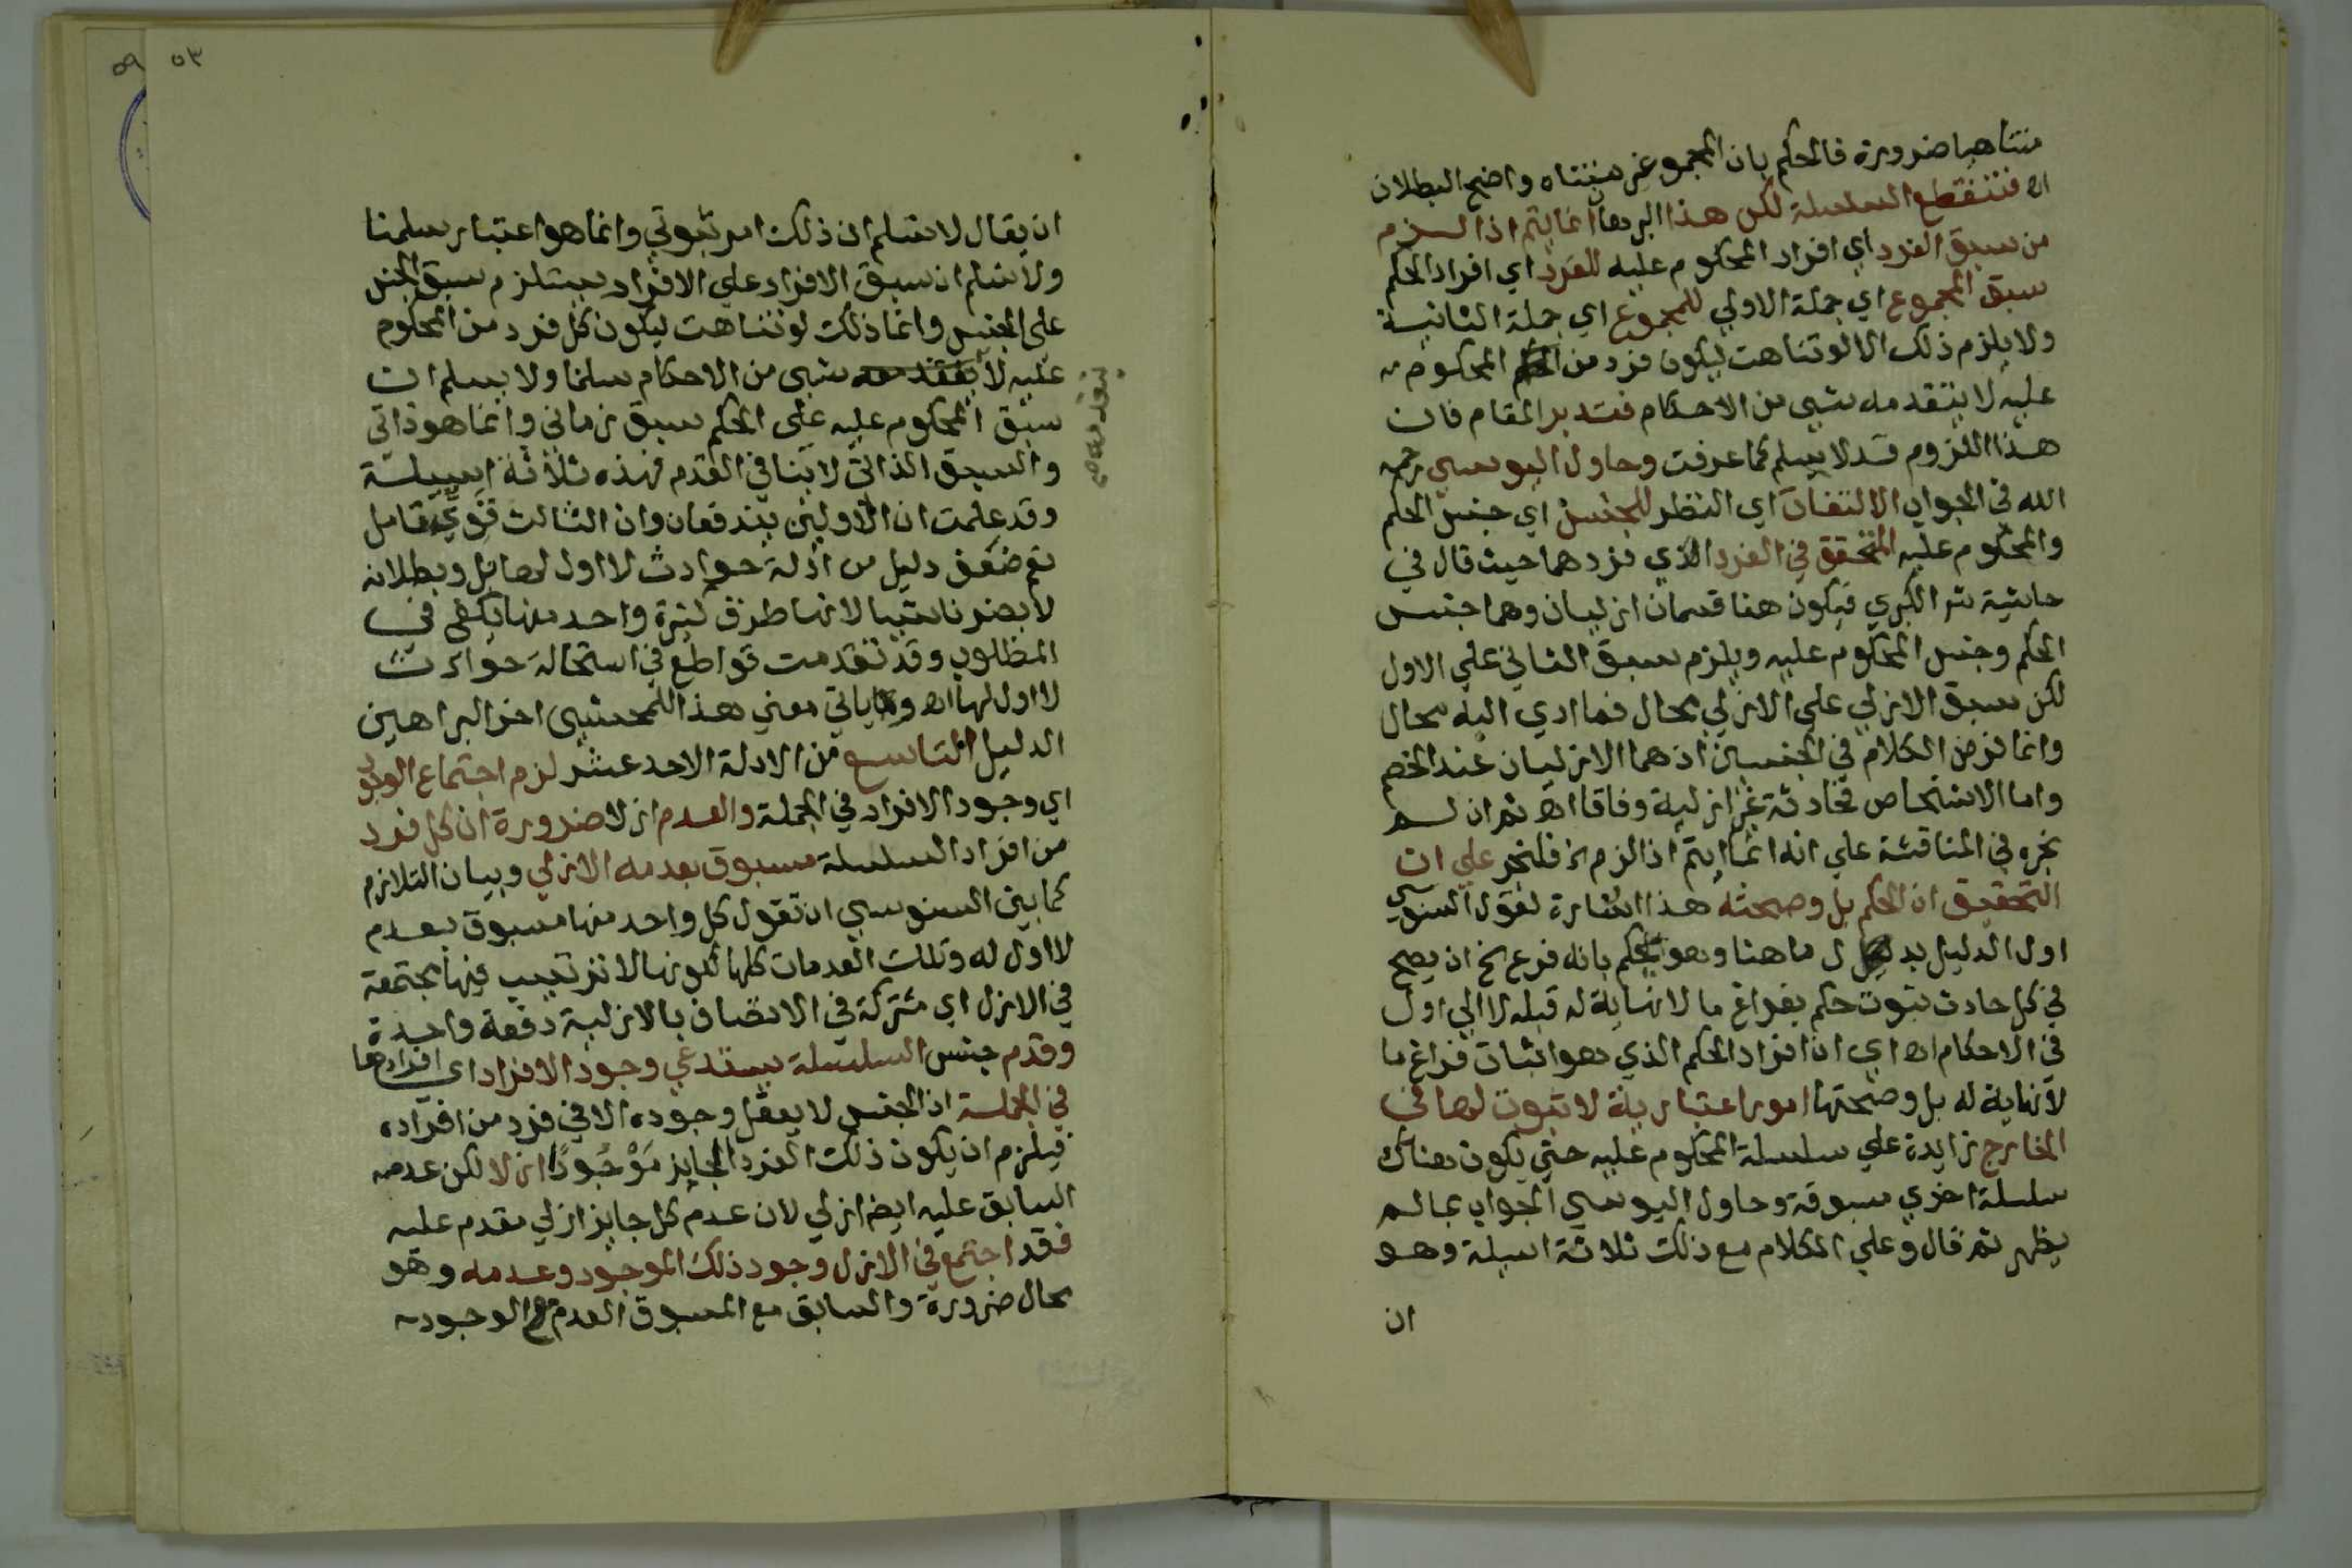 متناهيا ضرورة فالحكم بان المجموع غير متناه واضح البطلان
اه فتنقطع السلسلة لكن هذا البرهان انما يتم اذا لزم
من سبق الفرد اي افراد المحكوم عليه للفرد اي افراد الحكم
سبق المجموع اي جملة الاولي للمجموع اي جملة الثانية
ولا يلزم ذلك الا لو تناهت ليكون فرد من المحكوم
عليه لا يتقدمه شيى من الاحكام فتدبر المقام فان
هذا اللزوم قد لا يسلم كما عرفت وحاول اليوسي رحمه
الله في الجواب الالتفات اي النظر للجنس اي جنس الحكم
والمحكوم عليه المتحقق في الفرد الذي فردهما حيث قال في
حاشية شر الكبري فيكون هنا قسمان ازليان وهما جنس
الحكم وجنس المحكوم عليه ويلزم سبق الثاني علي الاول
لكن سبق الازلي علي الازلي محال فما ادي اليه محال
وانما فرض الكلام في الجنسين اذ هما الازليان عند الخصم
واما الاشخاص فحادثة غير ازلية وفاقا اه ثم ان لم
نجره في المناقشة علي انه انما يتم اذا لزم الخ فلنجر علي ان
التحقيق ان الحكم بل وصحته هذا اشارة لقول السنوسي
اول الدليل بدل ما هنا وهو يحكم بانه فرع الخ ان يصح
في كل حادث ثبوت حكم بفراغ ما لا نهاية له قبله لا الي اول
في الاحكام اه اي ان افراد الحكم الذي هو اثبات فراغ ما
لا نهاية له بل وصحتها امور اعتبارية لا ثبوت لها في
الخارج زايدة علي سلسلة المحكوم عليه حتي يكون هناك
سلسلة اخري مسبوقة وحاول اليوسي الجواب بما لم
يظهر ثم قال وعلي الكلام مع ذلك ثلاثة اسيلة وهو
ان
٥٣
٥٩
ان يقال لا نسلم ان ذلك امر ثبوتي وانما هو اعتبار سلمنا
ولا نسلم ان سبق الافراد علي الافراد يستلزم سبق الجنس
علي الجنس وانما ذلك لو تناهت ليكون كل فرد من المحكوم
عليه لا يتقدمه شيى من الاحكام سلمنا ولا يسلم ان
سبق المحكوم عليه علي الحكم سبق زماني وانما هو ذاتي
والسبق الذاتي لا ينافي القدم فهذه ثلاثة اسيلة
وقد علمت ان الاولين يندفعان وان الثالث قوي تامل
نعم ضعف دليل من ادلة حوادث لا اول لها بل وبطلانه
لا يضرنا شيا لانها طرق كثيرة واحد منها يكفي في
المطلوب وقد تقدمت قواطع في استحالة حوادث
لا اول لها اه وياتي معني هذا للمحشي اخر البراهين
الدليل التاسع من الادلة الاحد عشر لزم اجتماع الوجود
اي وجود الافراد في الجملة والعدم ازلا ضرورة ان كل فرد
من افراد السلسلة مسبوق بعدمه الازلي وبيان التلازم
كما بين السنوسي ان تقول كل واحد منها مسبوق بعدم
لا اول له وتلك العدمات كلها لكونها لا ترتيب فيها مجتمعة
في الازل اي مشتركة في الاتصاف بالازلية دفعة واحدة
وقدم جنس السلسلة يستدعي وجود الافراد اي افرادها
في الجملة اذ الجنس لا يعقل وجوده الا في فرد من افراده
فيلزم ان يكون ذلك الفرد الجايز مَوْجُودًا ازلا لكن عدمه
السابق عليه ايضا ازلي لان عدم كل جايز ازلي مقدم عليه
فقد اجتمع في الازل وجود ذلك الموجود وعدمه وهو
محال ضرورة والسابق مع المسبوق العدم مع الوجود